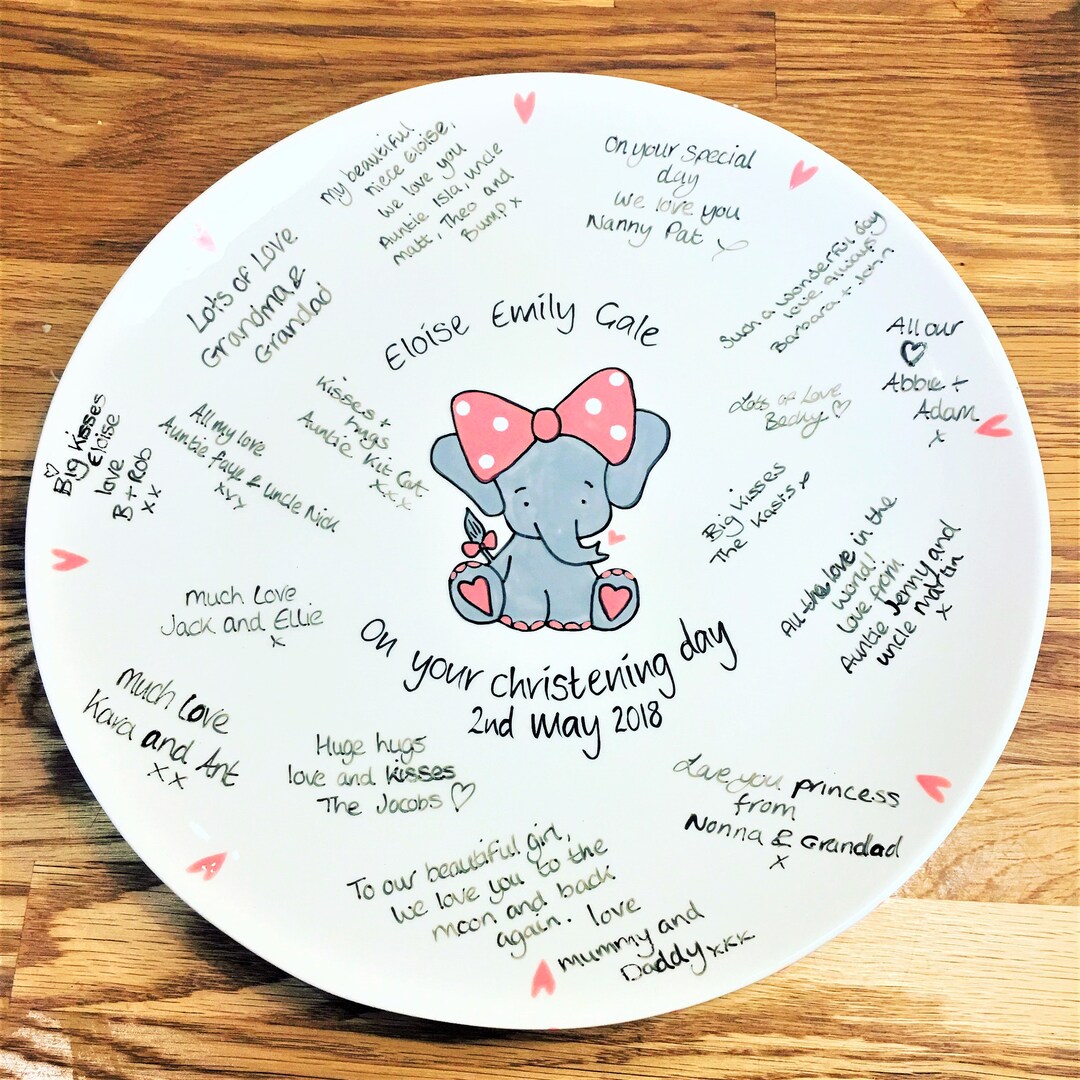 my beautiful
niece Eloise,
we love you
Auntie Isla, uncle
matt, Theo and
Bump x
On your special
day
we love you
Nanny Pat
Lots of Love
Grandma &
Grandad
Such a wonderful day
love always
Barbara + John
All our
♡
Abbie +
Adam
x
Eloise Emily Gale
Kisses +
hugs
Auntie Kit Cat
xxx
Lots of Love
Becky ♡
♡
Big Kisses
Eloise
love
B + Rob
xx
All my love
Auntie faye & uncle Nick
xxx
Big Kisses
The Kasts x
All the love in the
world!
love from
Auntie Jenny and
uncle martin
x
much Love
Jack and Ellie
x
On your christening day
2nd May 2018
much Love
Kara and Ant
xx
Huge hugs
love and kisses
The Jacobs ♡
Love you princess
from
Nonna & Grandad
x
To our beautiful girl,
we love you to the
moon and back
again. love
mummy and
Daddy xxx